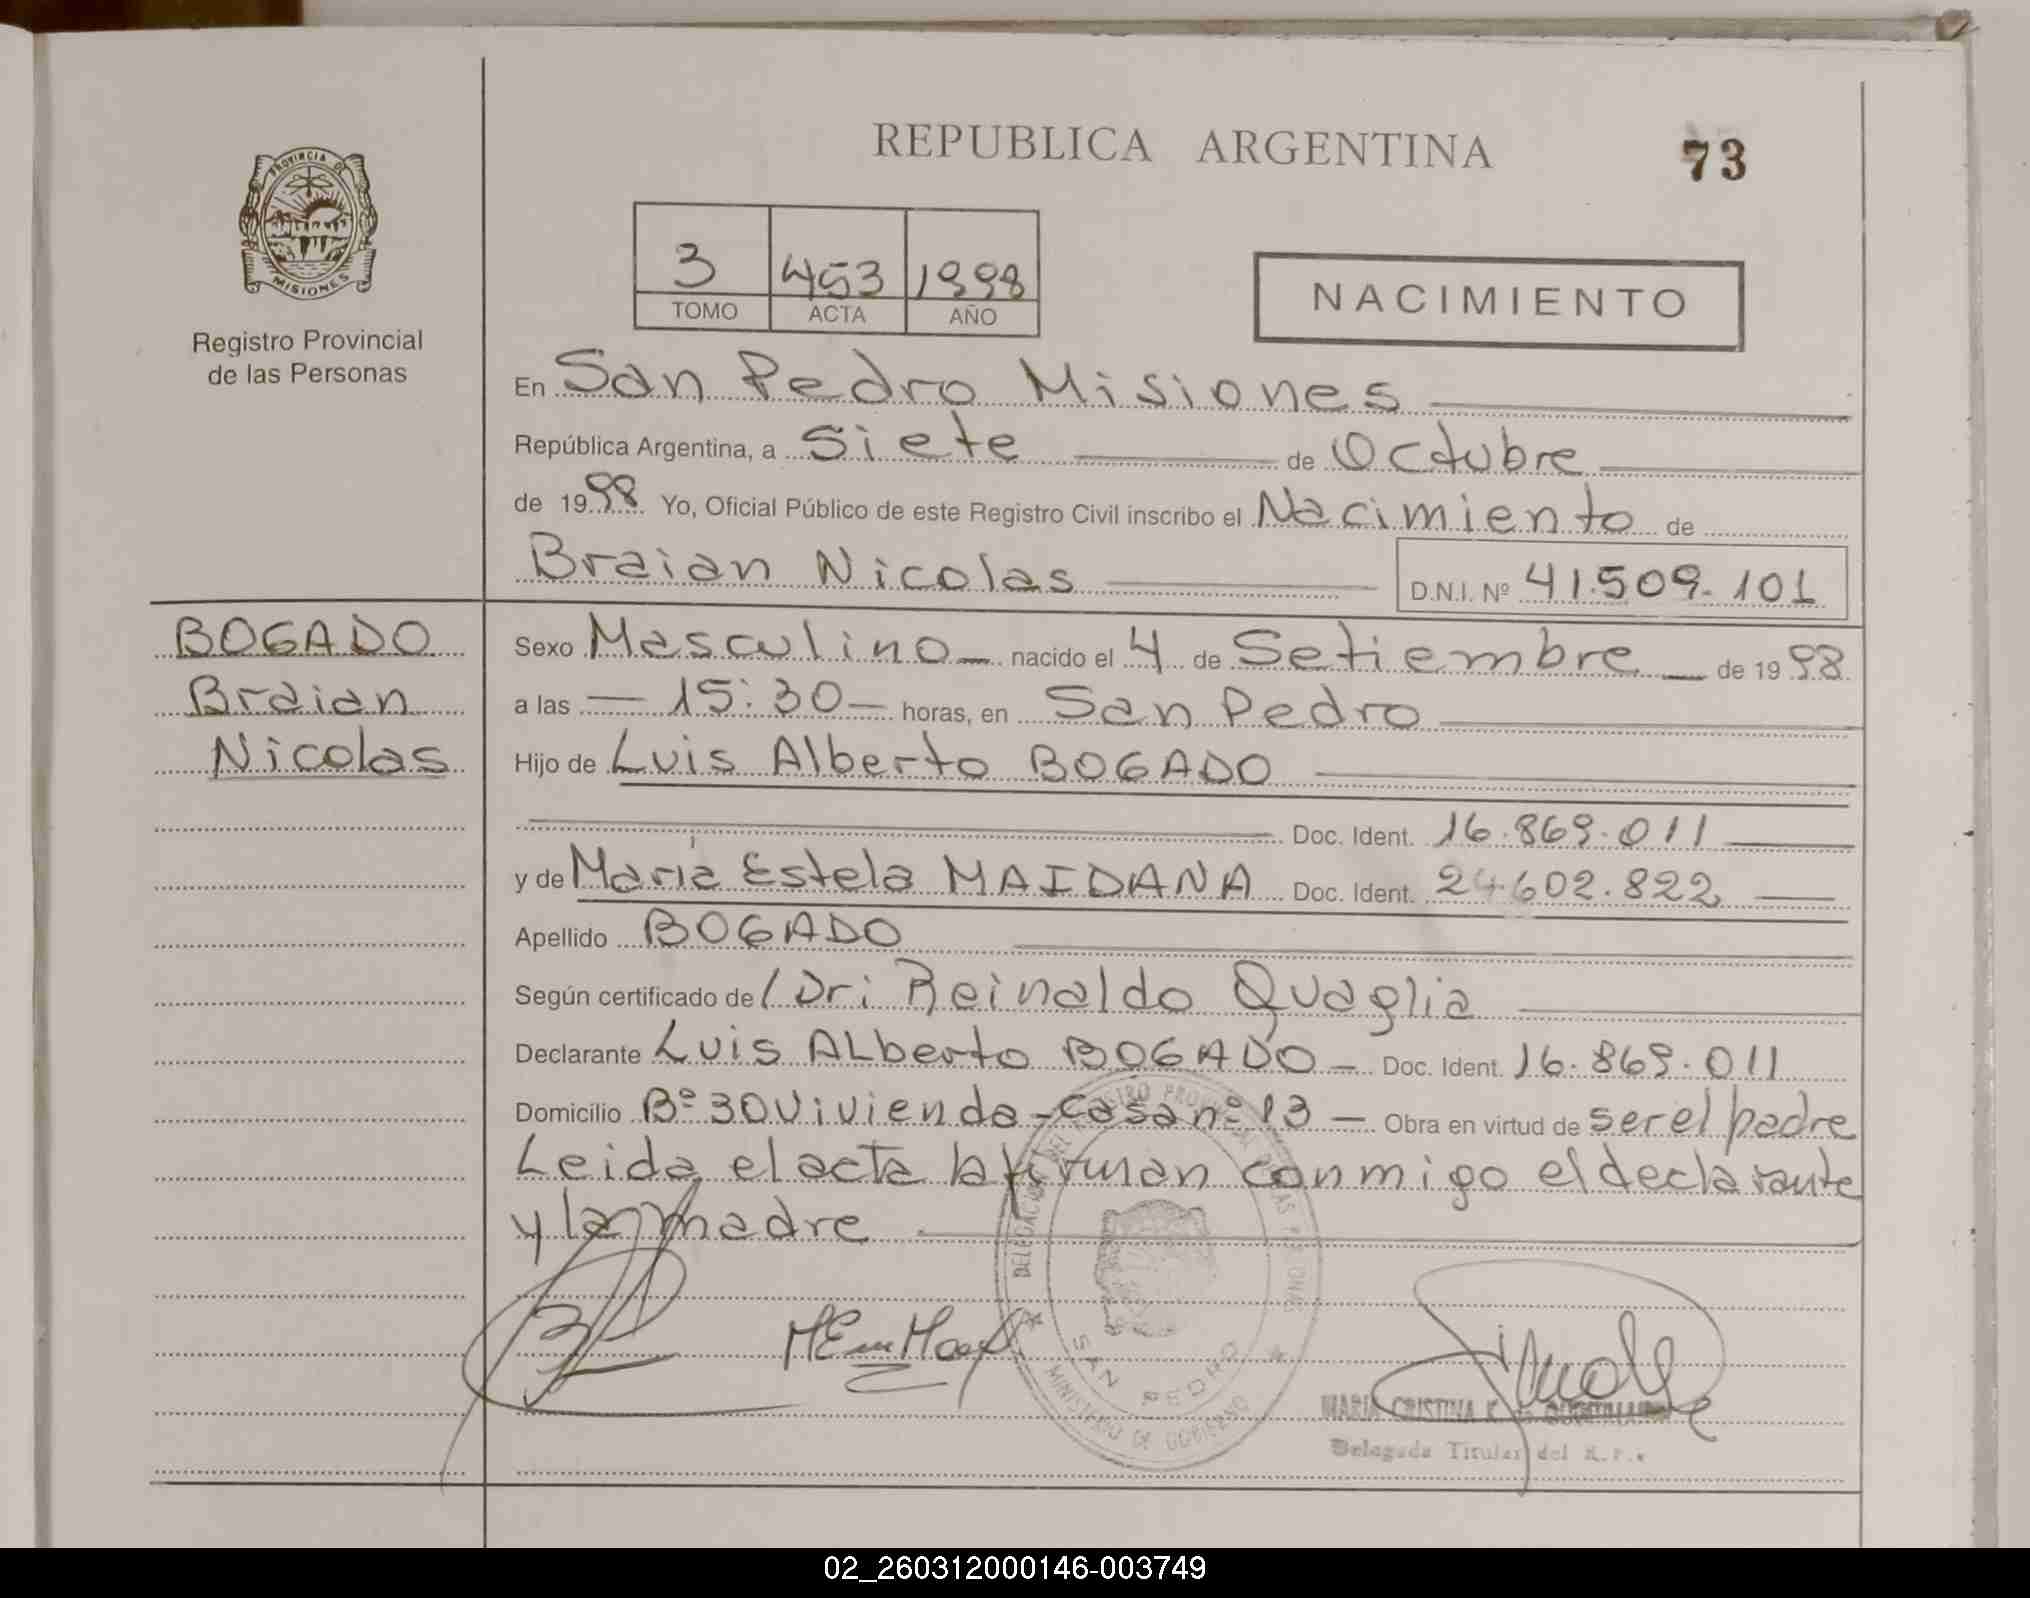 REPUBLICA ARGENTINA
73
PROVINCIA DE
MISIONES
Registro Provincial
de las Personas
3 453 1998
TOMO ACTA AÑO
NACIMIENTO
En San Pedro Misiones
República Argentina, a Siete de Octubre
de 1998 Yo, Oficial Público de este Registro Civil inscribo el Nacimiento de
Braian Nicolas D.N.I. Nº 41.509.101
BOGADO
Braian
Nicolas
Sexo Masculino nacido el 4 de Setiembre de 1998
a las 15:30 horas, en San Pedro
Hijo de Luis Alberto BOGADO
Doc. Ident. 16.869.011
y de Maria Estela MAIDANA Doc. Ident. 24.602.822
Apellido BOGADO
Según certificado de Dr: Reinaldo Quaglia
Declarante Luis ALberto BOGADO Doc. Ident. 16.869.011
Domicilio Bº 30 Vivienda - Casa nº 13 Obra en virtud de ser el padre
Leida el acta la firman conmigo el declarante
y la madre
DELEGACION DEL REGISTRO PROVINCIAL DE LAS PERSONAS
SAN PEDRO
MINISTERIO DE GOBIERNO
MARIA CRISTINA K. de
Delegada Titular del R.P.
02_260312000146-003749